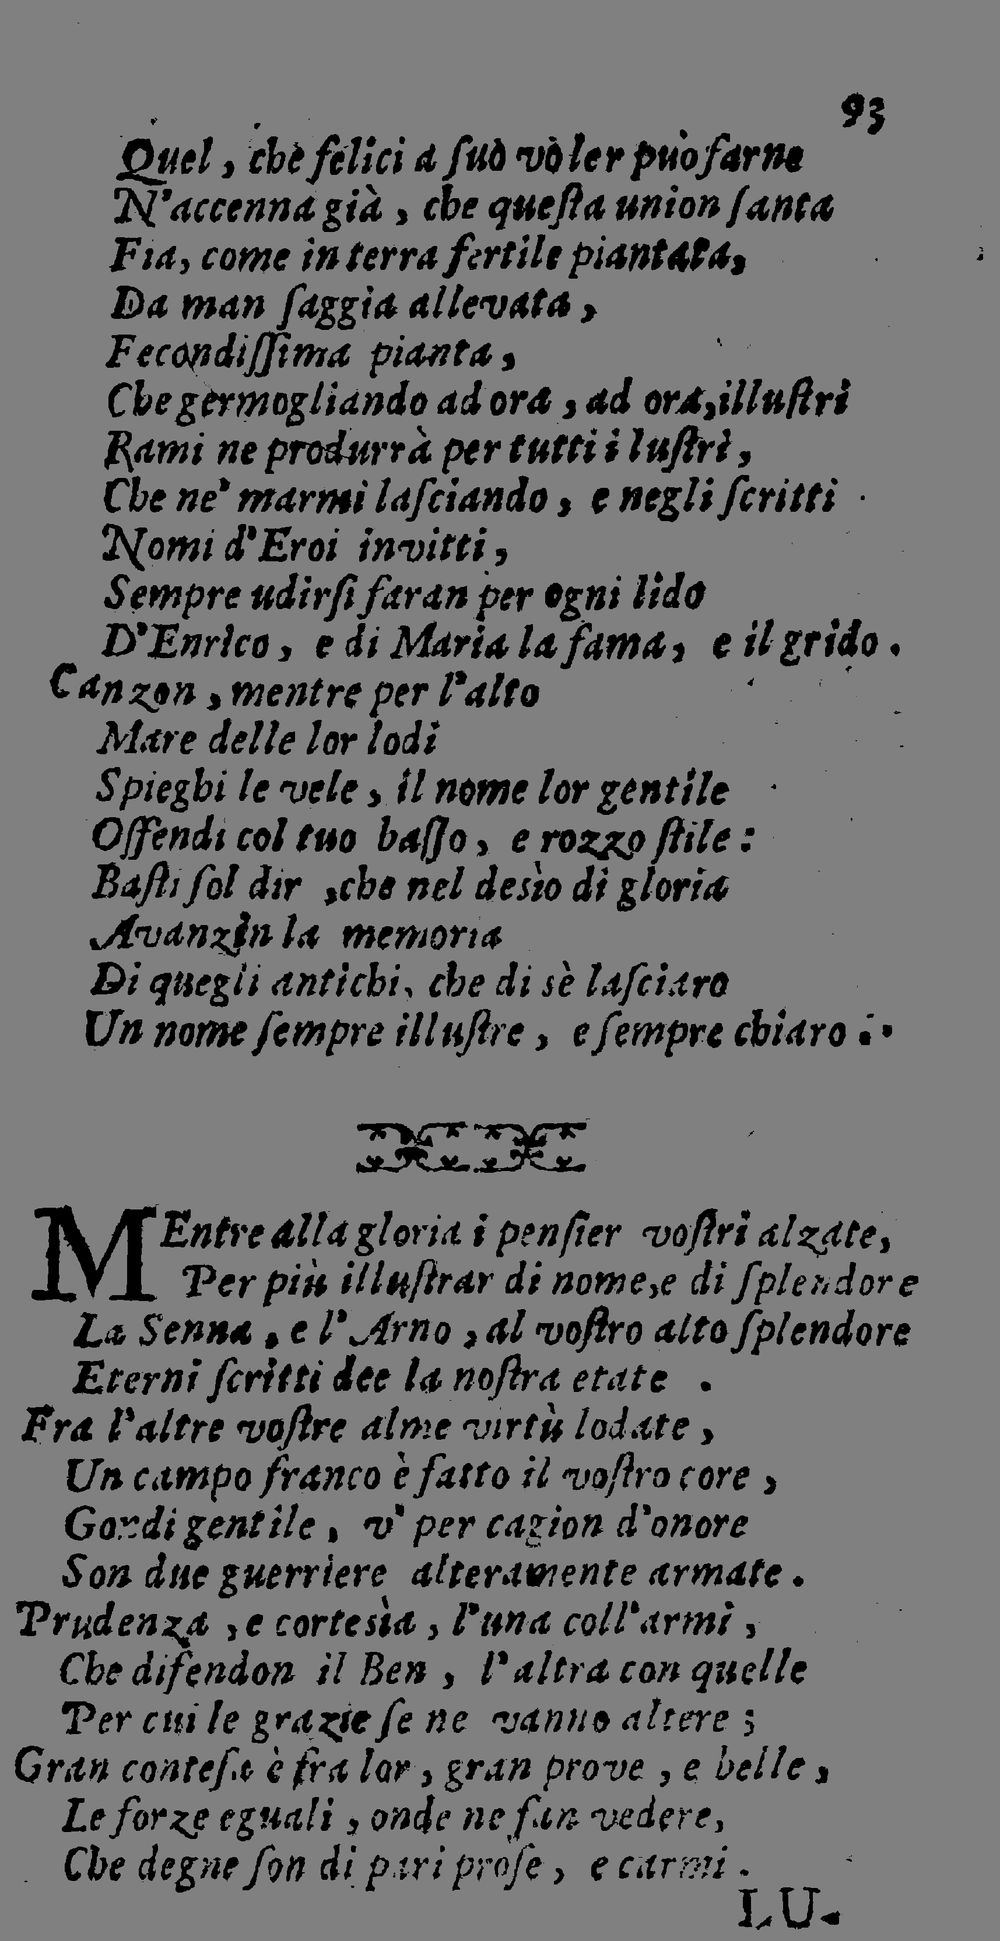 93
Quel, che felici a suo voler può farne
N'accenna già, che questa union santa
Fia, come in terra fertile piantata,
Da man saggia allevata,
Fecondissima pianta,
Che germogliando ad ora, ad ora, illustri
Rami ne produrrà per tutti i lustri,
Che ne' marmi lasciando, e negli scritti
Nomi d'Eroi invitti,
Sempre udirsi faran per ogni lido
D'Enrico, e di Maria la fama, e il grido.
Canzon, mentre per l'alto
Mare delle lor lodi
Spieghi le vele, il nome lor gentile
Offendi col tuo basso, e rozzo stile:
Basti sol dir, che nel desìo di gloria
Avanzin la memoria
Di quegli antichi, che di sè lasciaro
Un nome sempre illustre, e sempre chiaro.
MEntre alla gloria i pensier vostri alzate,
Per più illustrar di nome, e di splendore
La Senna, e l'Arno, al vostro alto splendore
Eterni scritti dee la nostra etate.
Fra l'altre vostre alme virtù lodate,
Un campo franco è fatto il vostro core,
Gondi gentile, v' per cagion d'onore
Son due guerriere alteramente armate.
Prudenza, e cortesìa, l'una coll'armi,
Che difendon il Ben, l'altra con quelle
Per cui le grazie se ne vanno altere;
Gran contesa è fra lor, gran prove, e belle,
Le forze eguali, onde ne fan vedere,
Che degne son di pari prose, e carmi.
LU-